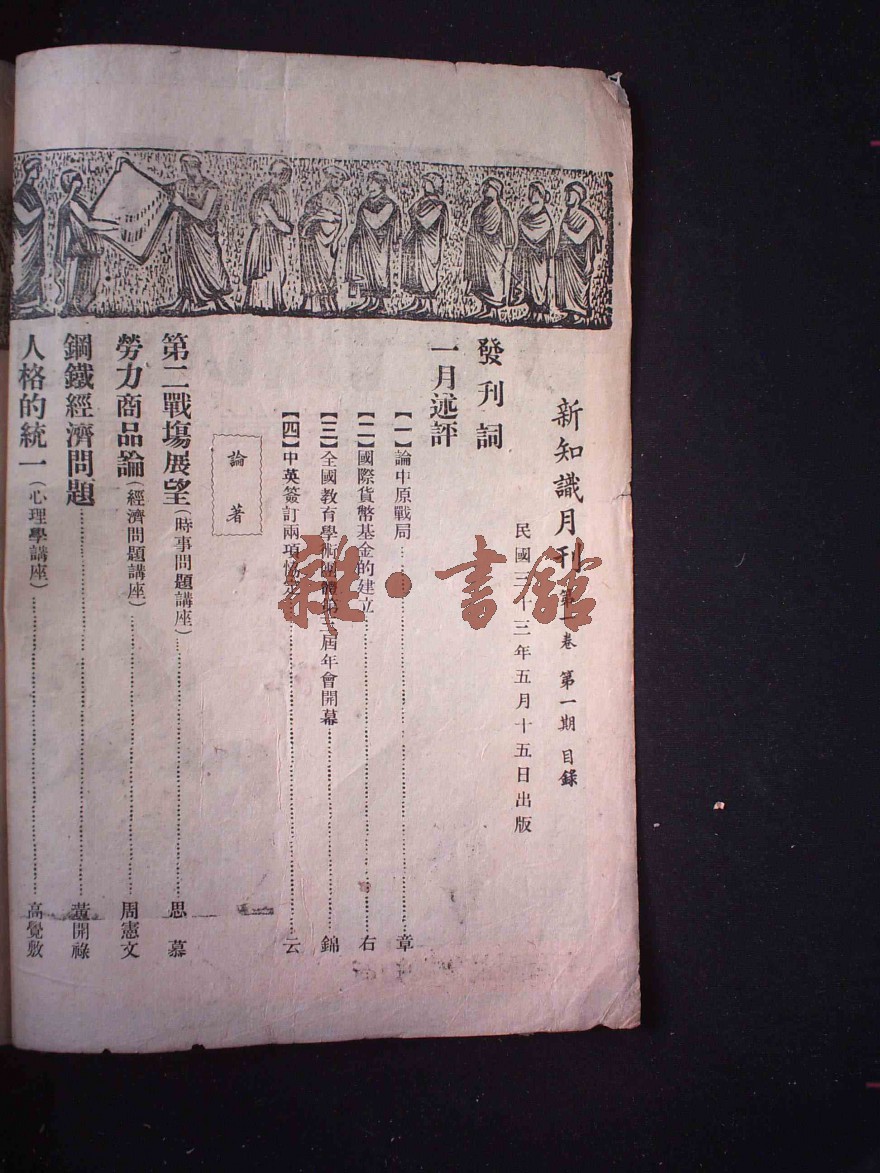 新知識月刊 第一卷 第一期 目錄
民國三十三年五月十五日出版
發刊詞
一月述評
【一】論中原戰局 章
【二】國際貨幣基金的建立 右
【三】全國教育學術團體第三屆年會開幕 錦
【四】中英簽訂兩項協定 云
論著
第二戰場展望(時事問題講座) 思慕
勞力商品論(經濟問題講座) 周憲文
鋼鐵經濟問題 黃開祿
人格的統一(心理學講座) 高覺敷
雜·書館